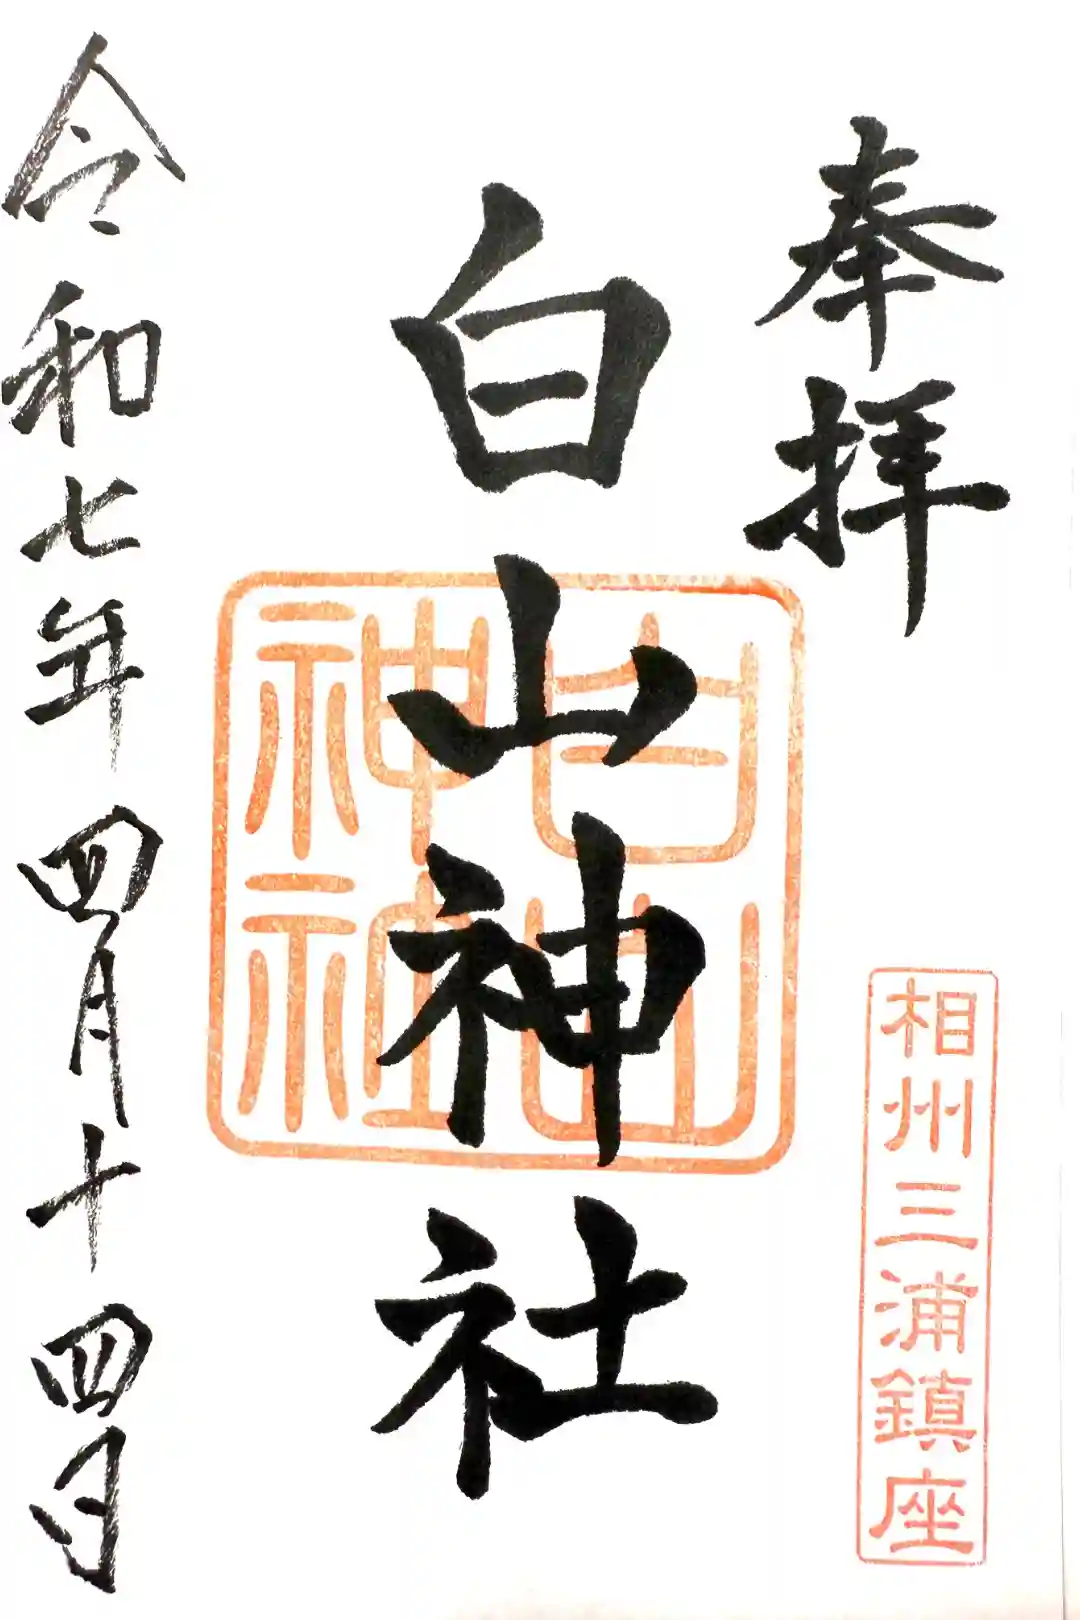 奉拝
相州三浦鎮座
白山神社
白山
神社
令和七年四月十四日